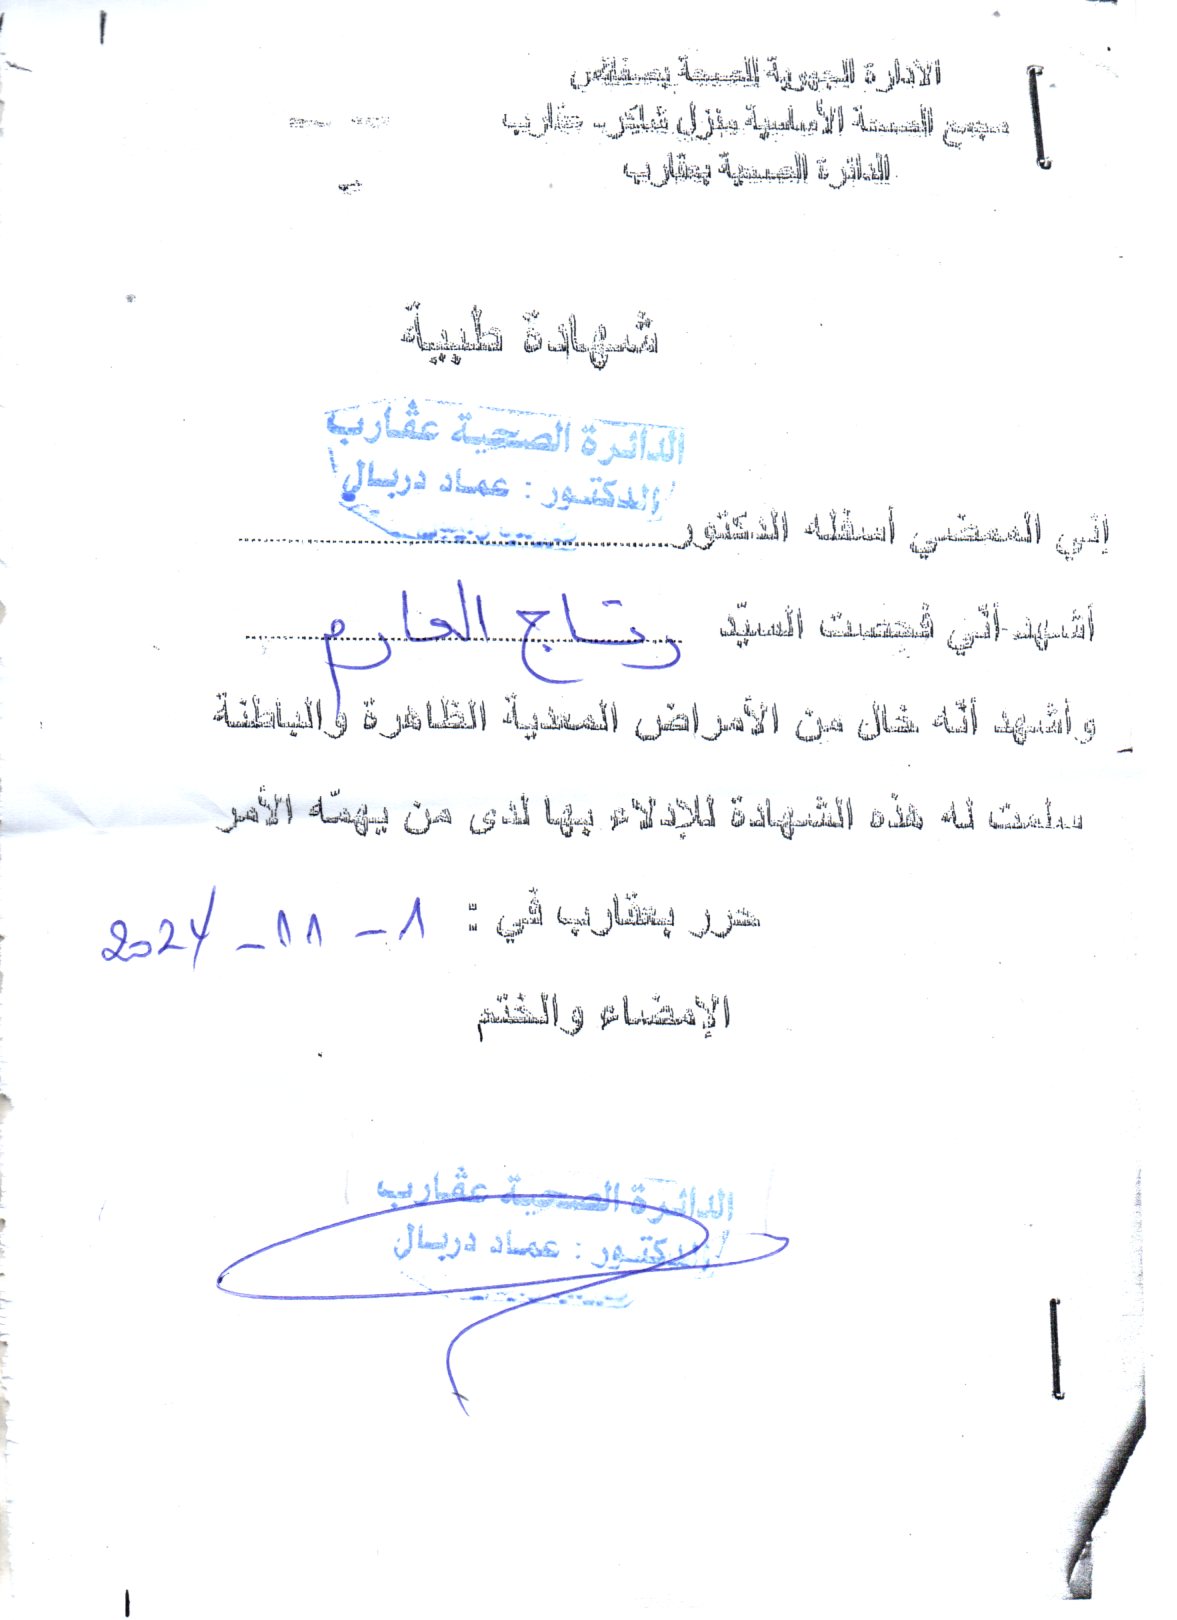 الإدارة الجهوية للصحة بصفاقس
مجمع الصحة الأساسية بمنزل شاكر - عقارب
الدائرة الصحية بعقارب
شهادة طبية
الدائرة الصحية عقارب
الدكتور : عماد دربال
إني الممضي أسفله الدكتور
أشهد أنّي فحصت السيّد رتاج العارم
وأشهد أنّه خال من الأمراض المعدية الظاهرة والباطنة
سلمت له هذه الشهادة للإدلاء بها لدى من يهمّه الأمر
حرر بعقارب في : 1 - 11 - 2024
الإمضاء والختم
الدائرة الصحية عقارب
الدكتور : عماد دربال